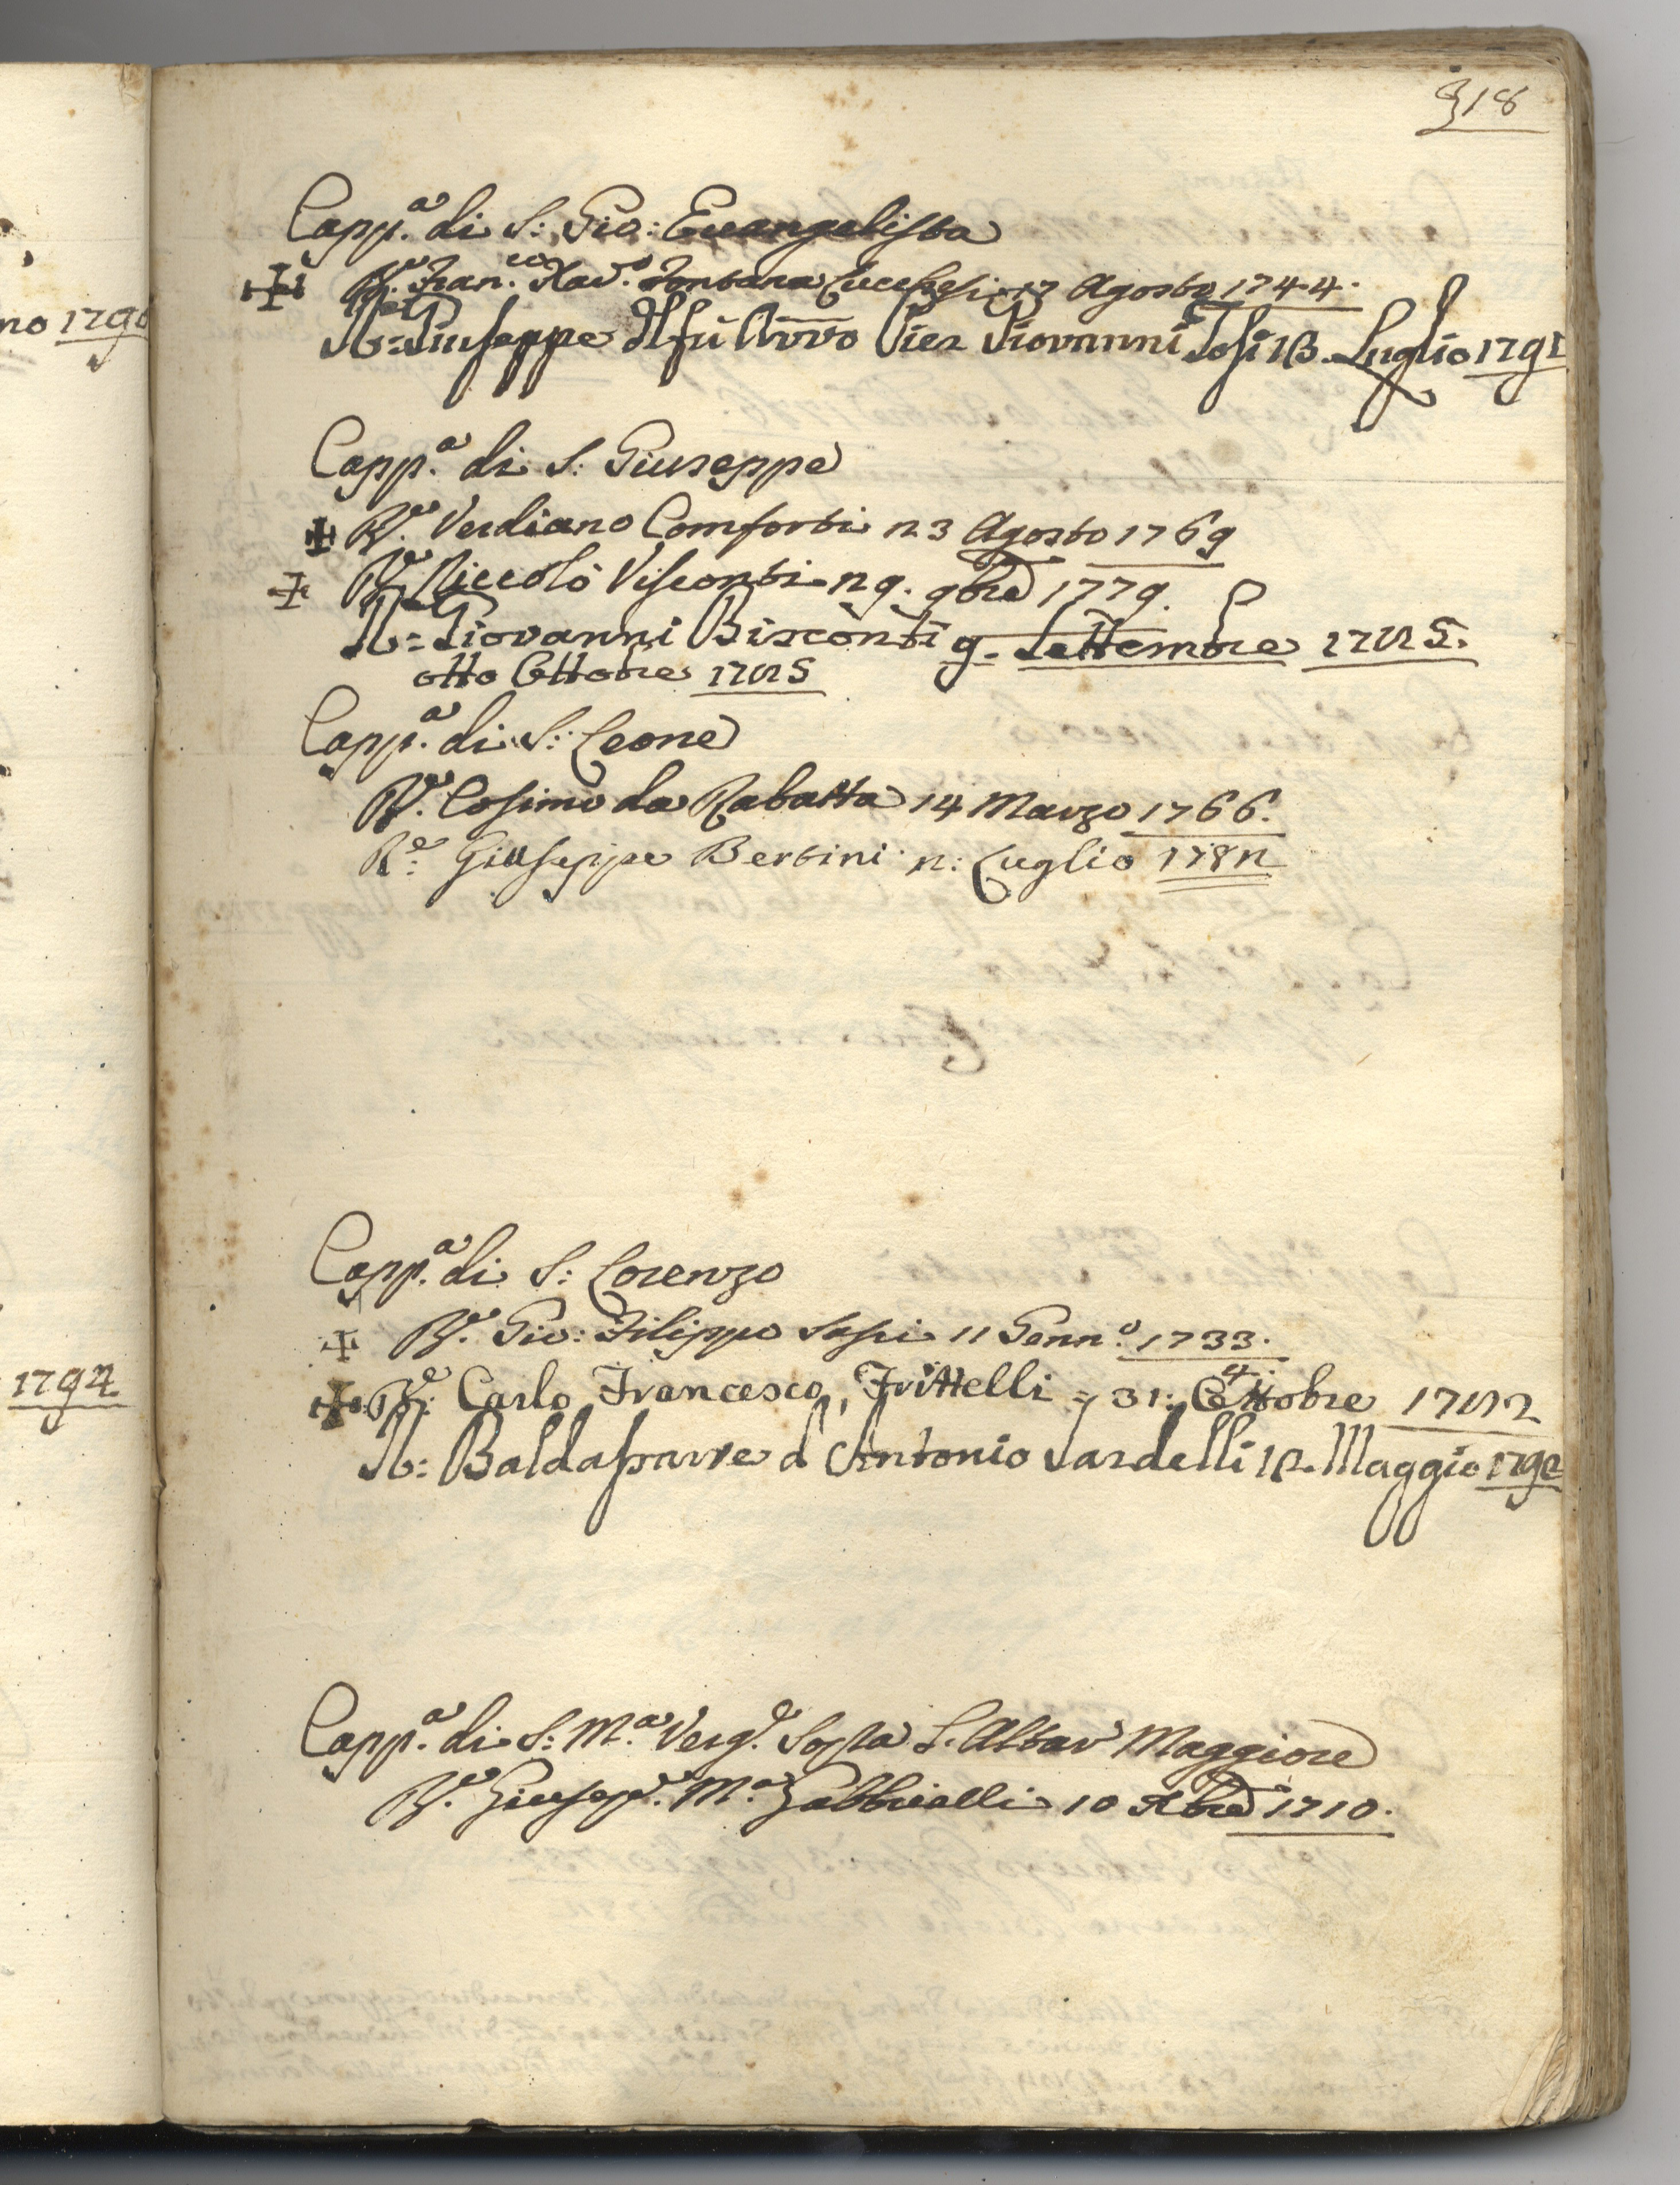 no 1790
1794
318
Capp.a di S: Gio: Evangelista
R.e Fran.co Xav.o Fontana Lucchesi 17 Agosto 1744.
R.e Giuseppe del fù Pier Giovannni Tosi 18. Luglio 1791
Capp.a di S: Giuseppe
R.e Verdiano Comforti 23 Agosto 1769
R.e Niccolò Visconti 29. 9bre 1779.
R.e Giovanni Bisconti 9. Settembre 1785.
otto Ottobre 1785
Capp.a di S: Leone
R.e Cosimo da Rabatta 14 Marzo 1766.
R.e Giuseppe Bertini 2: Luglio 1782
Capp.a di S: Lorenzo
R.e Gio: Filippo Sassi 11 Genn.o 1733.
R.e Carlo Francesco Frittelli = 31: Ottobre 1782
R.e Baldassarre d Antonio Sardelli 12. Maggio 1792
Capp.a di S: M.a Verg.e Sop.a L. Altar Maggiore
R.e Giusepp.e M.a Gabbrielli 10 Xbre 1710.